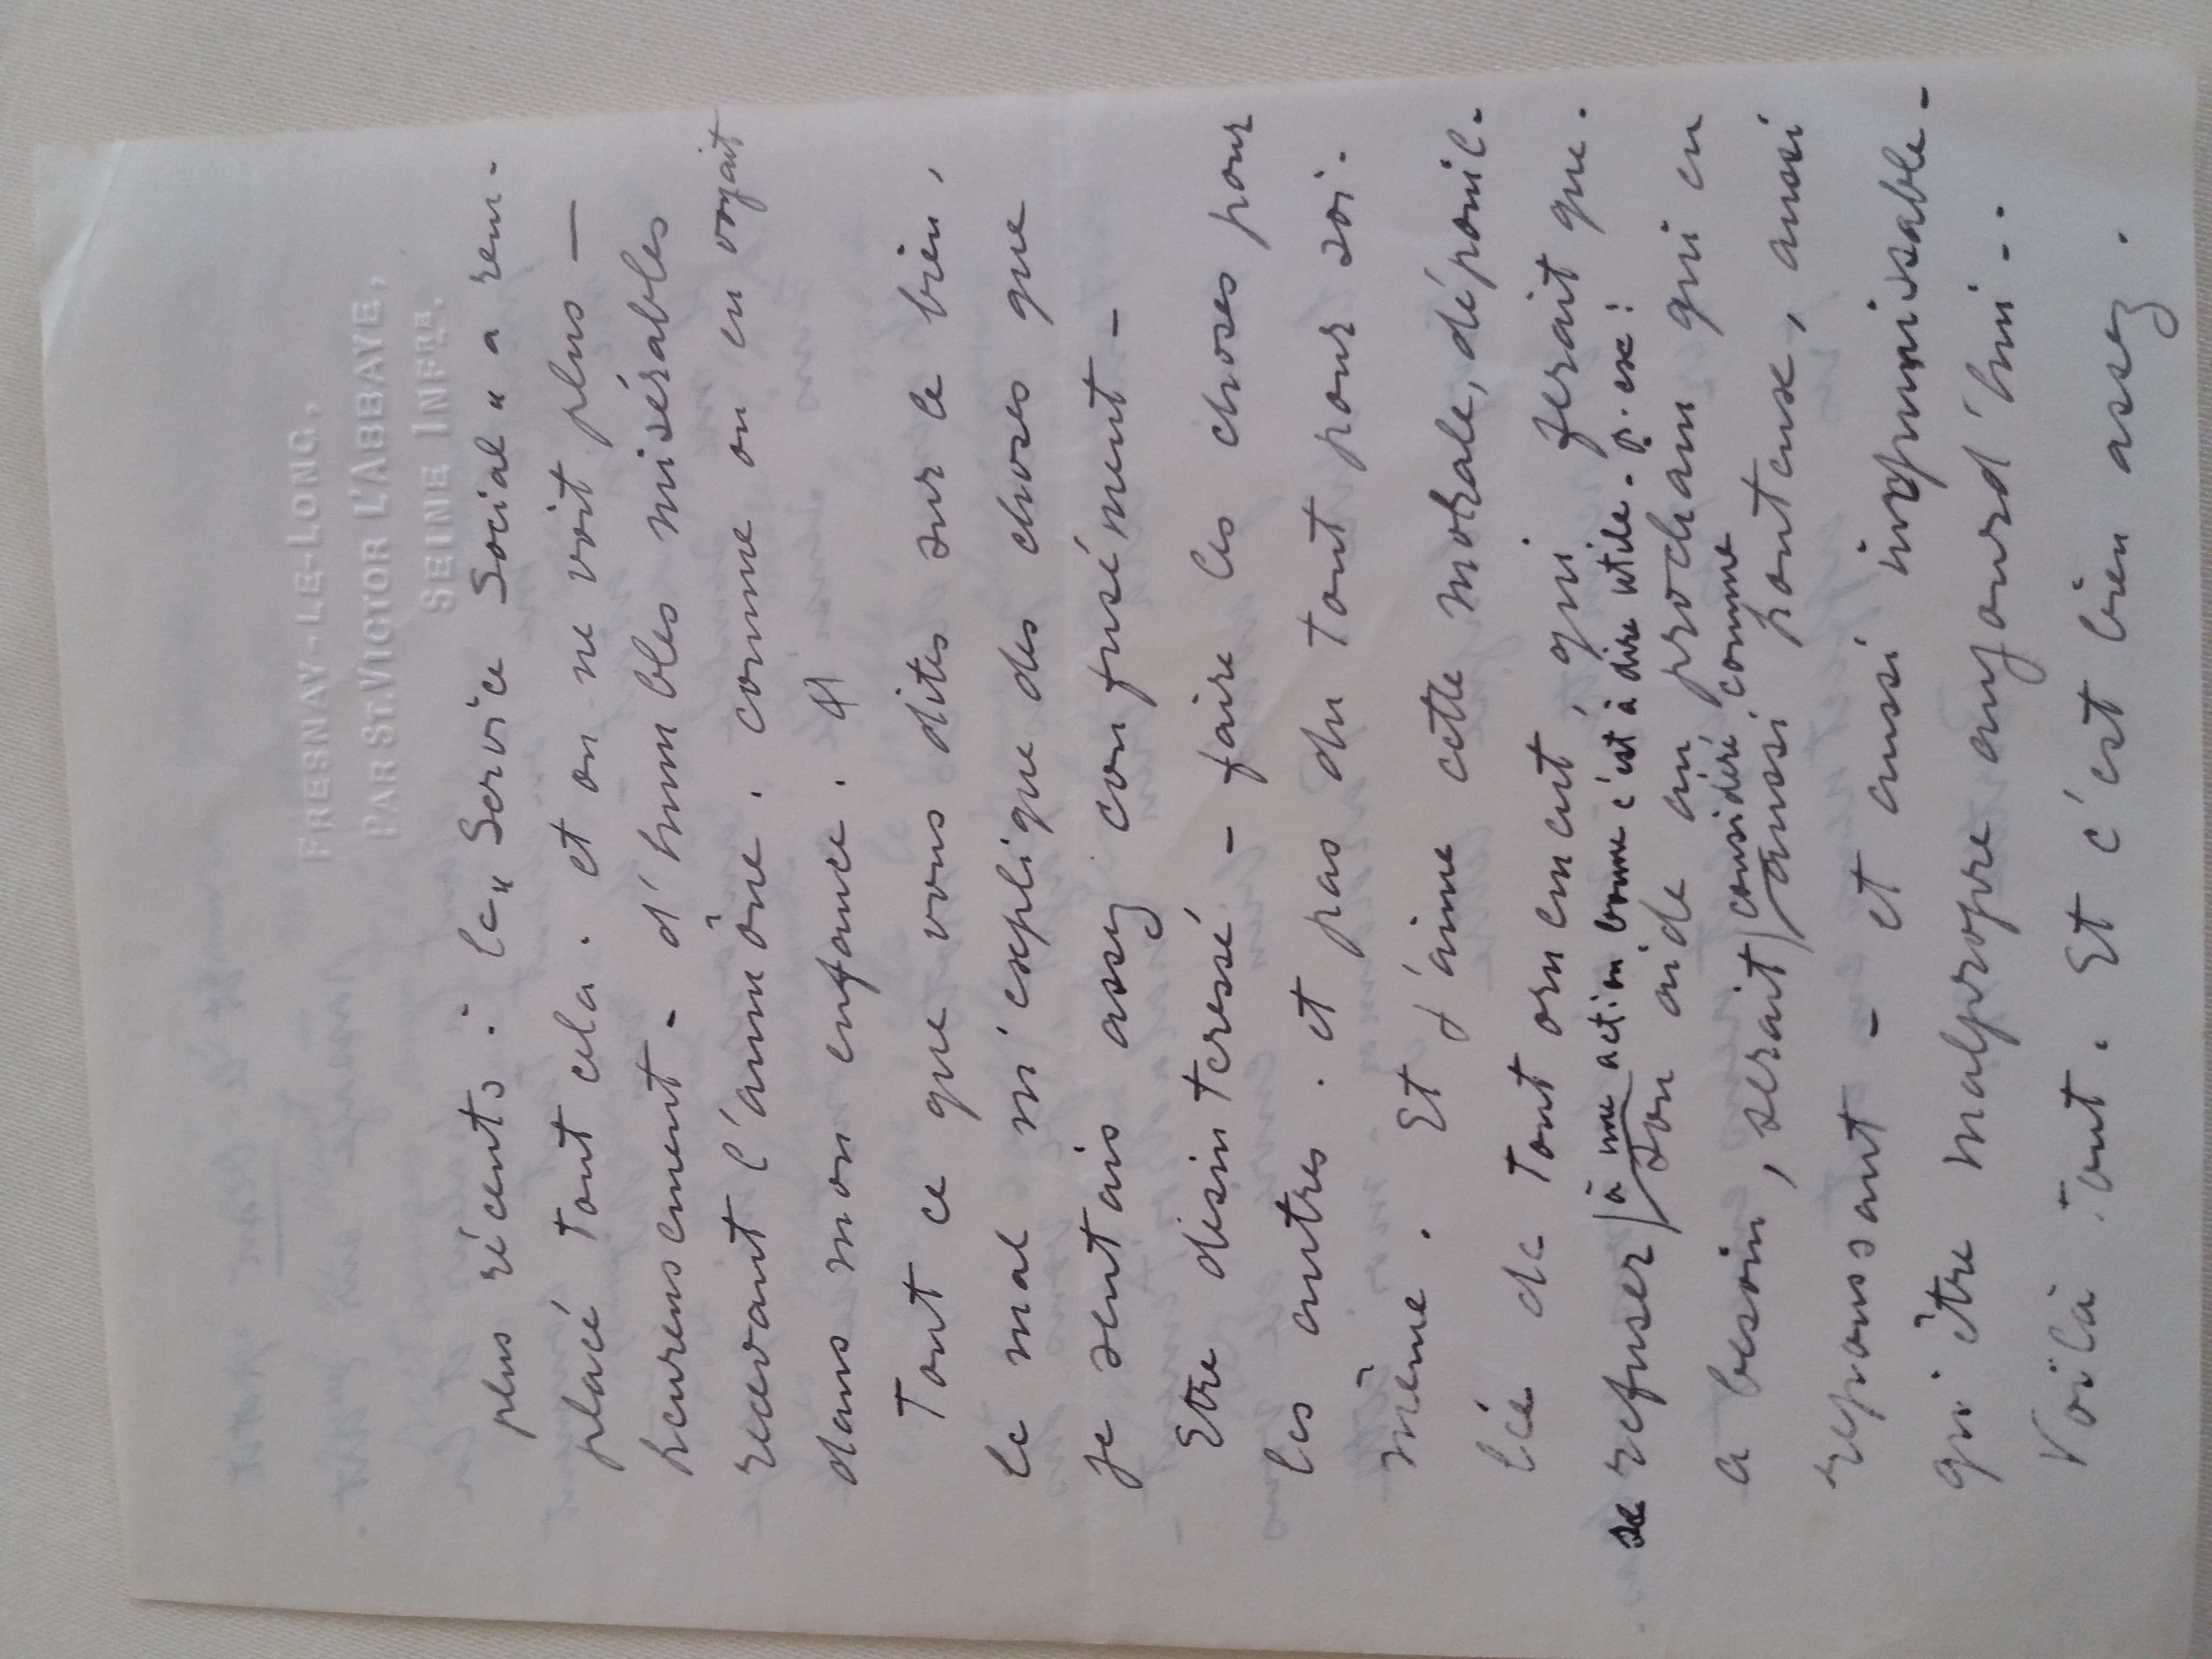 FRESNAY-LE-LONG,
PAR ST. VICTOR L'ABBAYE,
SEINE INFRE.
plus récents : le " Service Social " a rem-
placé tout cela. et on ne voit plus —
heureusement - d'humbles misérables
recevant l'aumône. comme on en voyait
dans mon enfance.
Tout ce que vous dites sur le bien,
le mal m'explique des choses que
je sentais assez confusément -
Etre désinteressé - faire les choses pour
les autres. et pas du tout pour soi-
même. Et j'aime cette morale, dépouil-
lée de tout ornement, qui ferait que.
se refuser à une action bonne c'est à dire utile. p. ex:
son aide au prochain qui en
a besoin, serait considéré comme
aussi honteuse, aussi
repoussant - et aussi inepuisable -
qu'être malpropre aujourd'hui -.
Voilà tout. Et c'est bien assez.